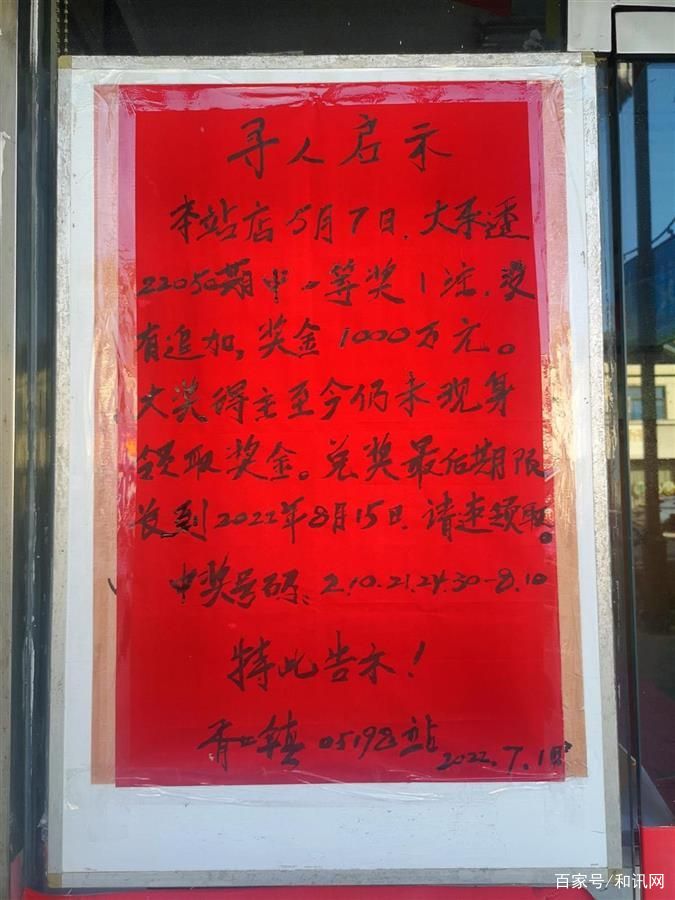 寻人启示
本站店5月7日.大乐透
22050期中一等奖1注.没
有追加,奖金1000万元。
大奖得主至今仍未现身
领取奖金。兑奖最后期限
为到2022年8月15日.请速领取。
中奖号码、2.10.21.24.30-8.10
特此告示!
香口镇 05198站
2022.7.1日
百家号/和讯网